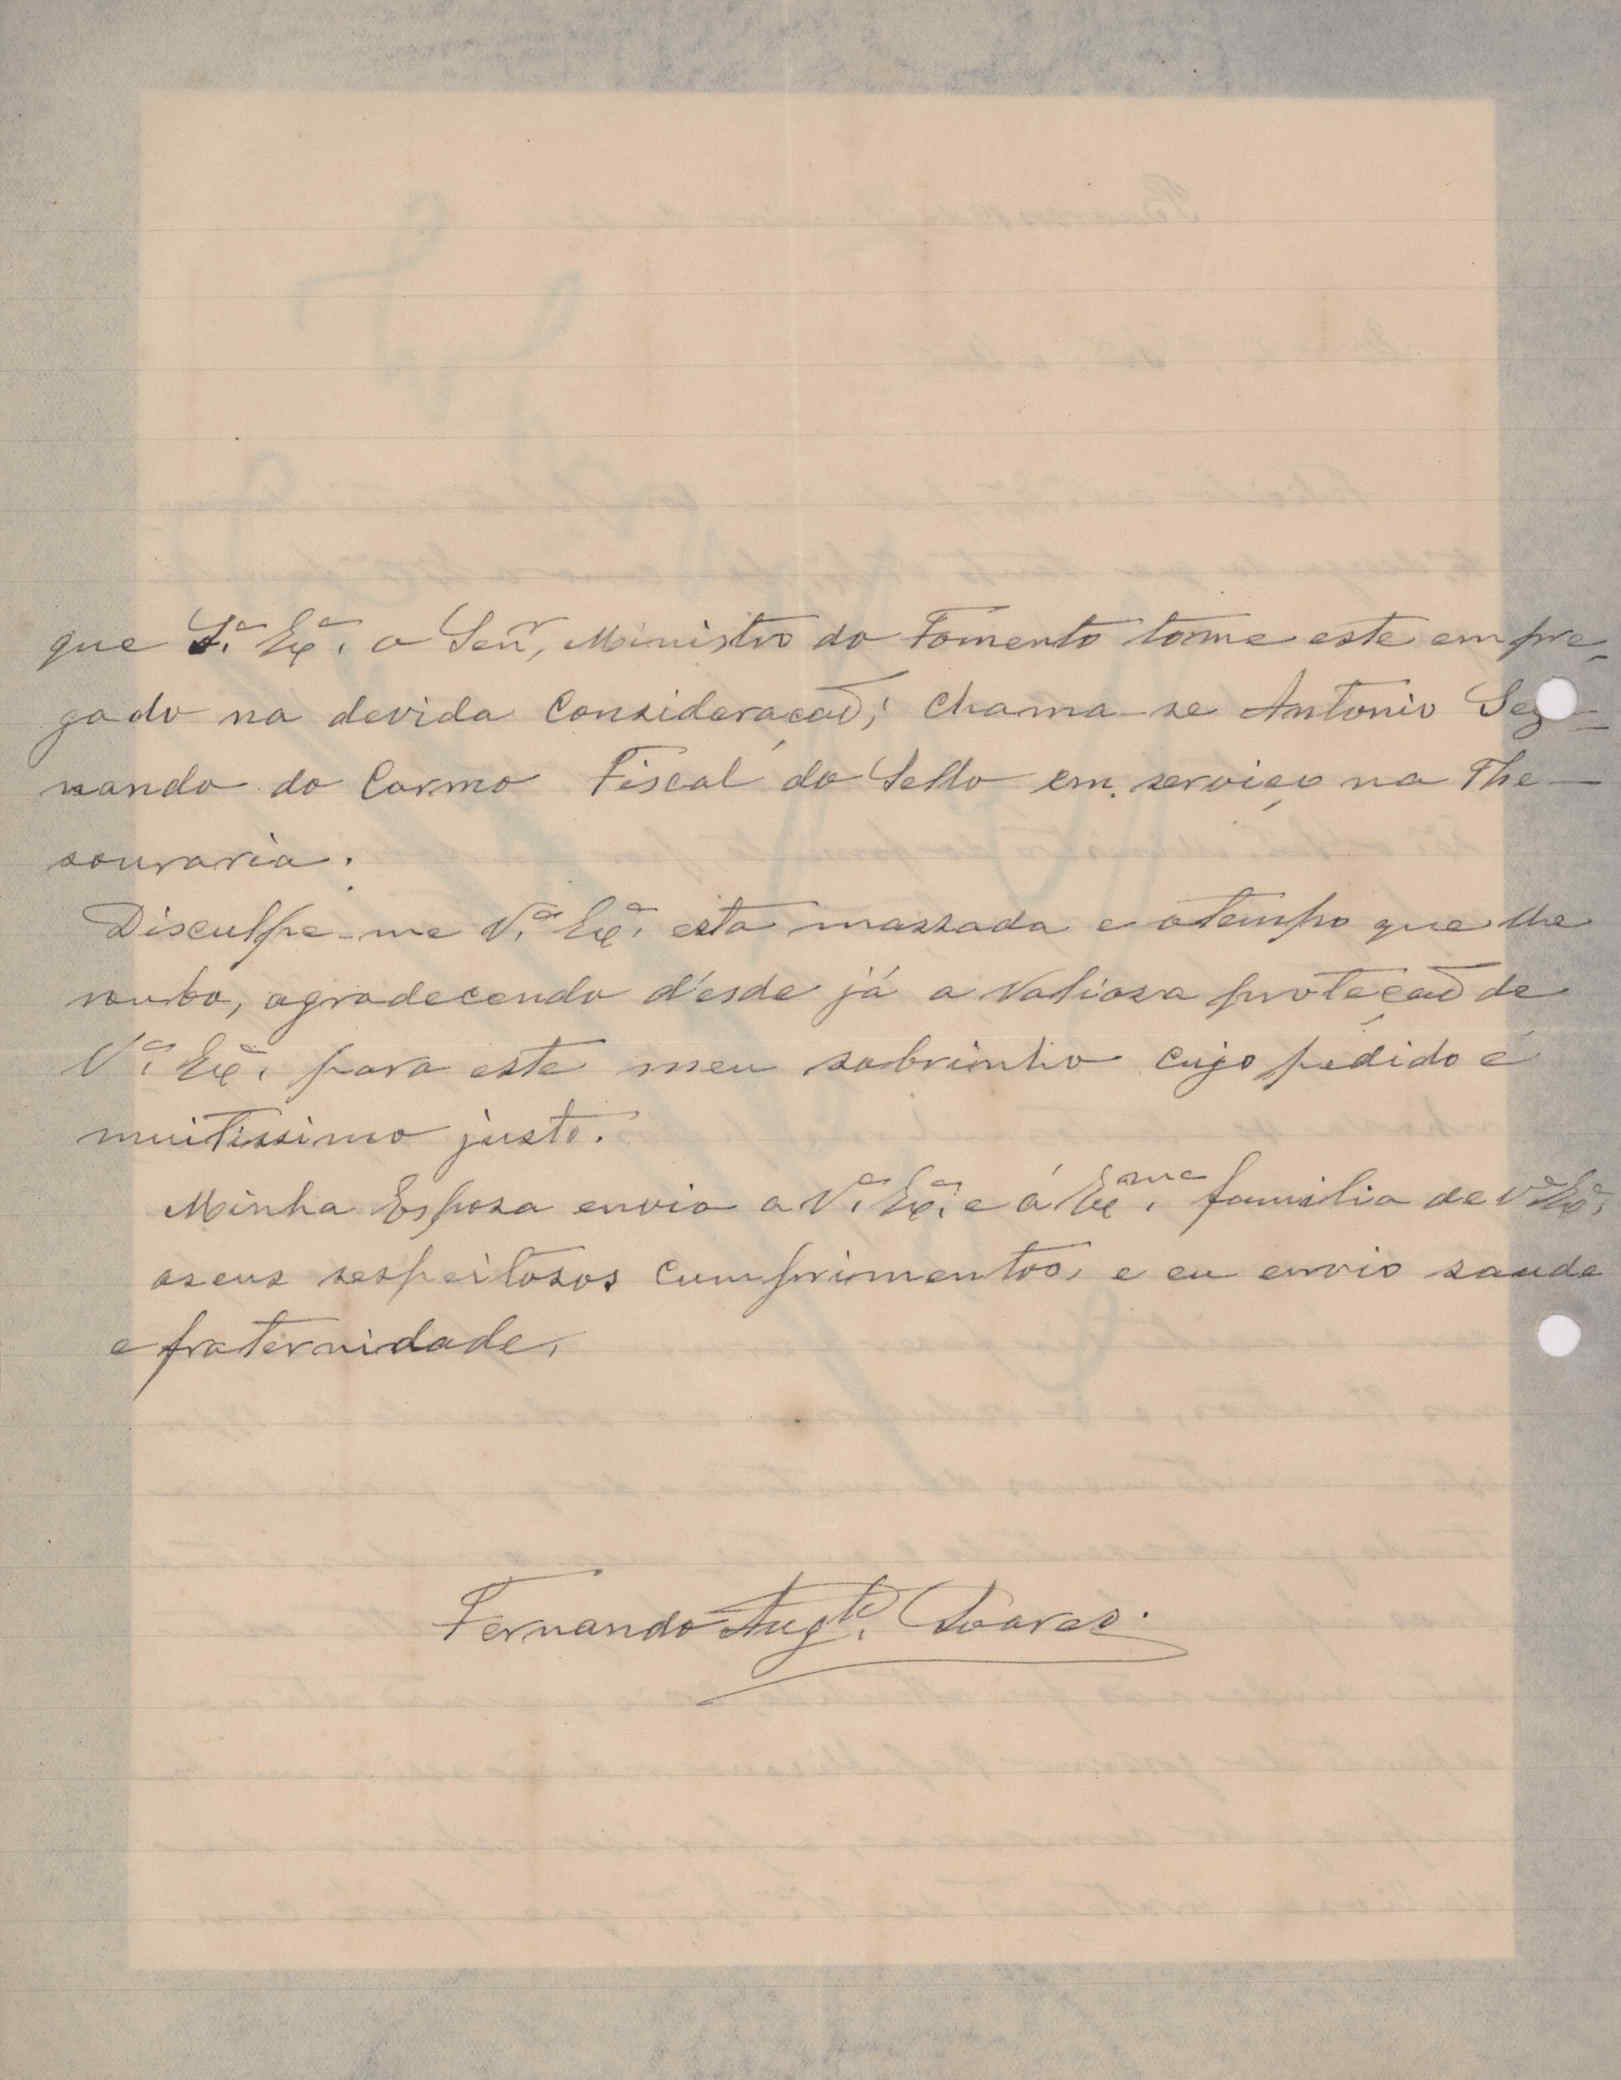 que S.ª Ex.ª, o Senr, Ministro do Fomento tome este empre-
gado na devida Consideração; chama-se Antonio
nando do Carmo Fiscal do Sello em serviço na The-
souraria.
Disculpe-me V.ª Ex.ª esta massada e o tempo que lhe
roubo, agradecendo d'esde já a valiosa proteção de
V.ª Ex.ª, para este meu sobrinho cujo pedido é
muitissimo justo.
Minha Esposa envia a V.ª Ex.ª, e á Ex.ma familia de V.ª Ex.ª,
os eus respeitosos cumprimentos, e eu envio saude
e fraternidade,
Fernando Augto. Soares.